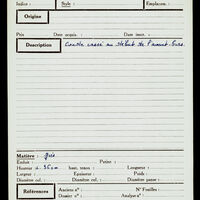 Indice : Style : Emplacem. :
Origine
Prix Date acquis. : Date inscr. :
Description Cruche cassé au début de l'avant-
Matière : grès
Enduit : Poinz :
Hauteur : ± 35 cm haut. totale : Longueur :
Largeur : Epaisseur : Poids :
Diamètre col : Diamètre panse :
Références Anciens n° : N° Fouilles :
Dossier n° : Analyse n° :